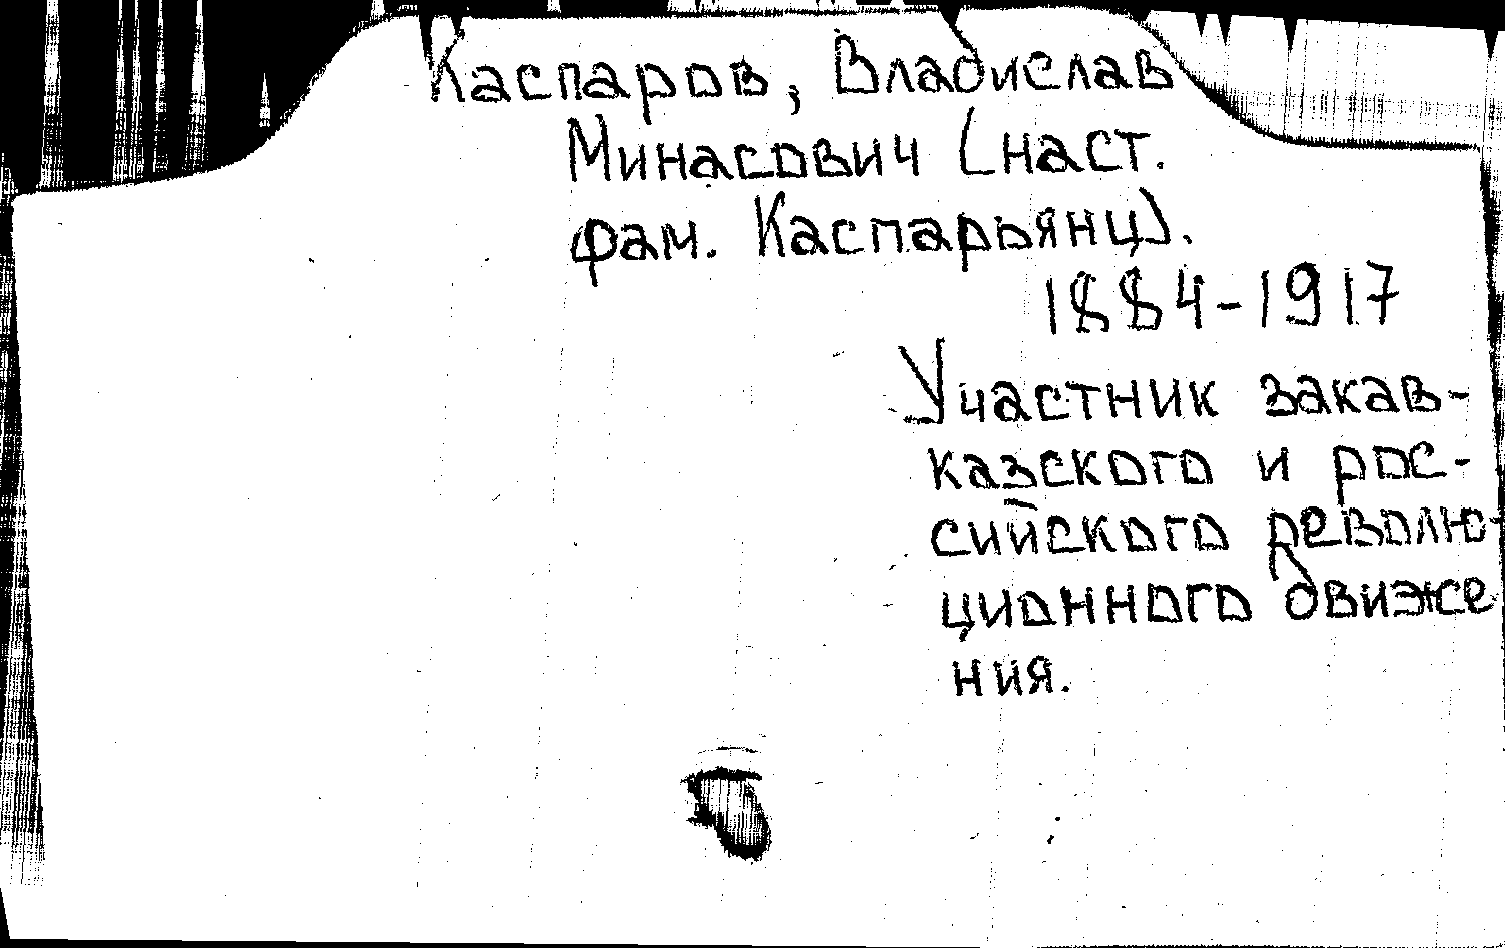 Каспаров, Владислав
Минасович (наст.
фам. Каспарьянц).
1884-1917
Участник закав-
казского и рос-
сийского револю-
ционного движе
ния.